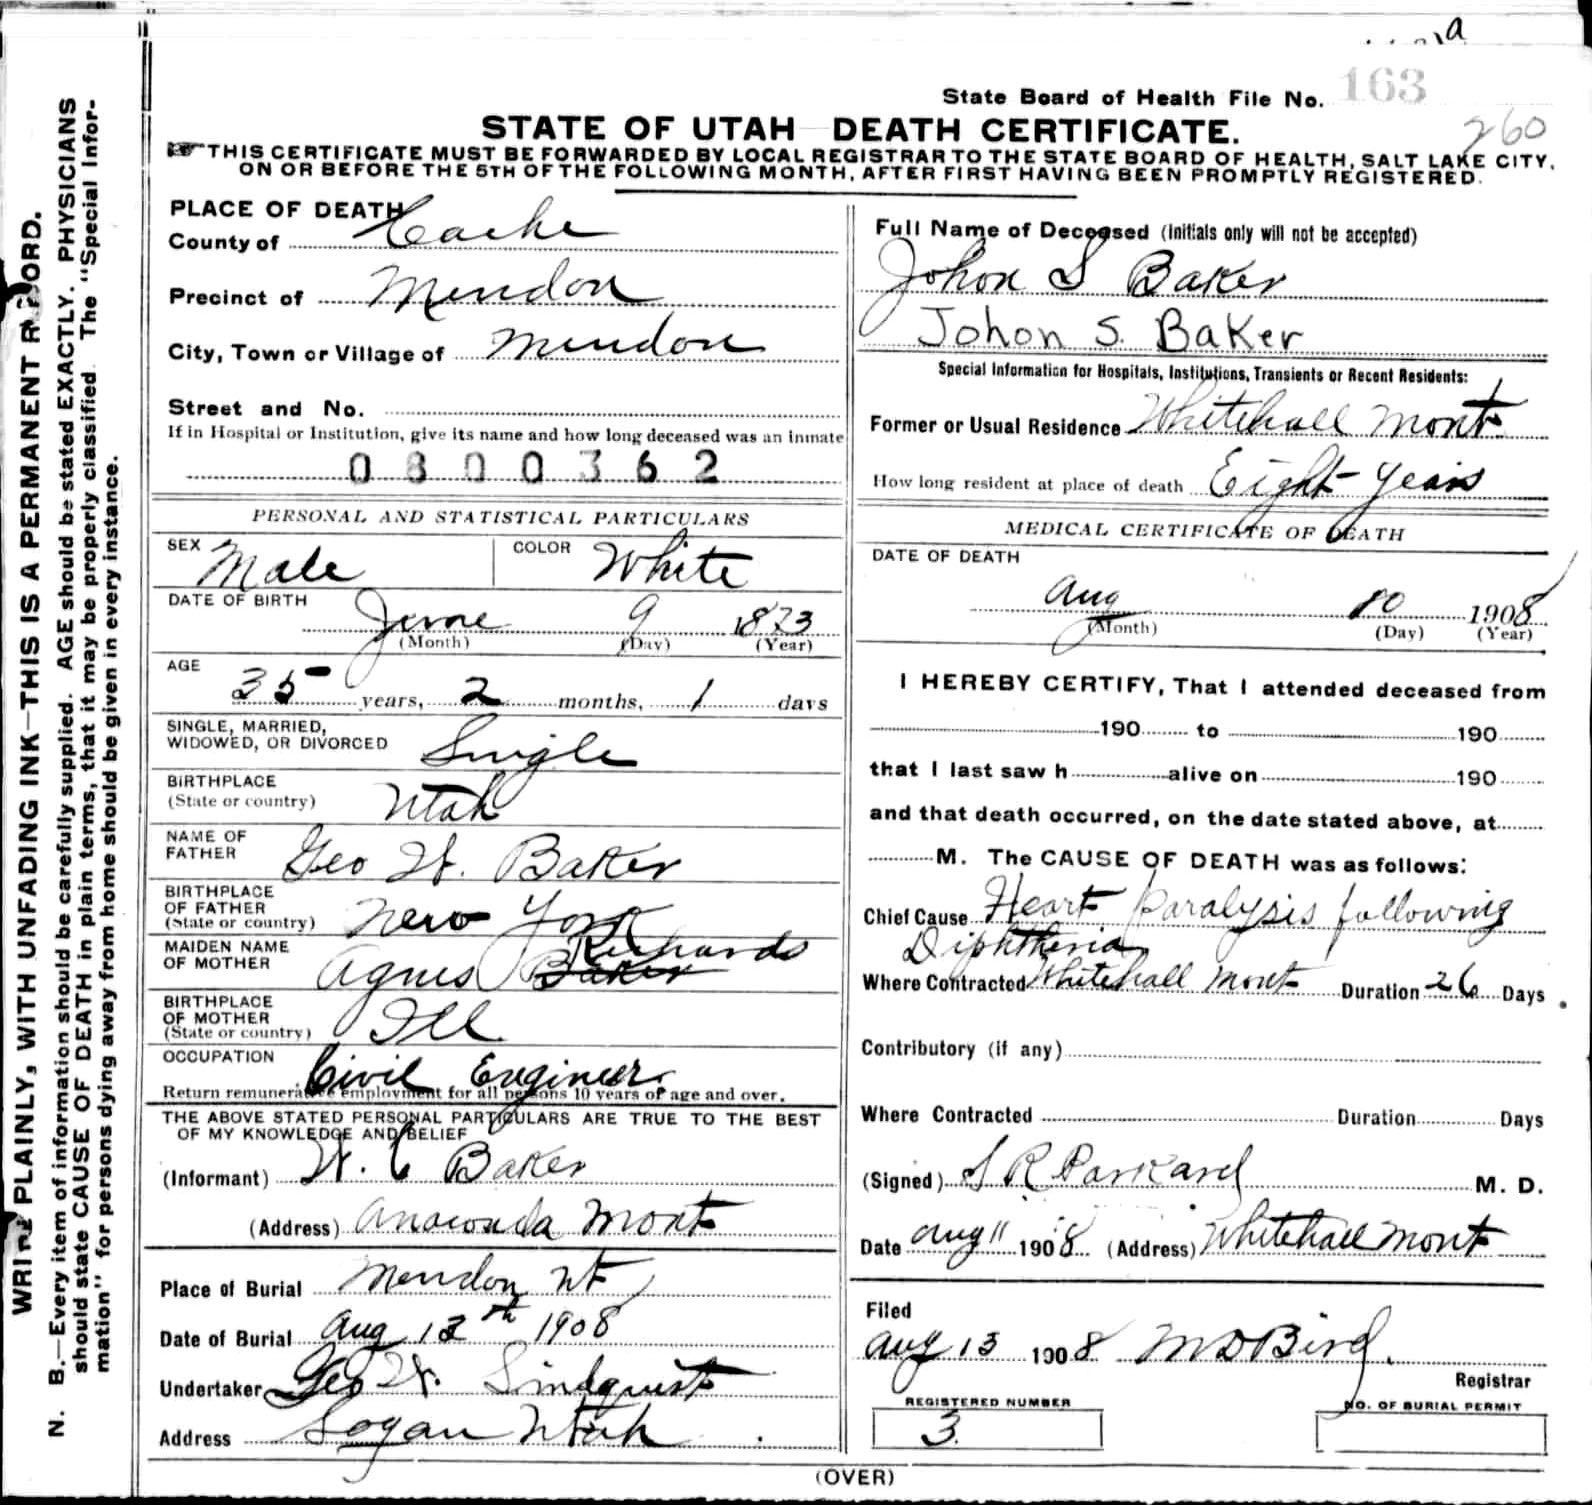 a
State Board of Health File No. 163
260
STATE OF UTAH DEATH CERTIFICATE.
☞THIS CERTIFICATE MUST BE FORWARDED BY LOCAL REGISTRAR TO THE STATE BOARD OF HEALTH, SALT LAKE CITY,
ON OR BEFORE THE 5TH OF THE FOLLOWING MONTH, AFTER FIRST HAVING BEEN PROMPTLY REGISTERED.
WRITE PLAINLY, WITH UNFADING INK—THIS IS A PERMANENT RECORD.
N. B.—Every item of information should be carefully supplied. AGE should be stated EXACTLY. PHYSICIANS
should state CAUSE OF DEATH in plain terms, that it may be properly classified. The "Special Infor-
mation" for persons dying away from home should be given in every instance.
PLACE OF DEATH
County of Cache
Precinct of Mendon
City, Town or Village of Mendon
Street and No.
If in Hospital or Institution, give its name and how long deceased was an inmate
0800362
PERSONAL AND STATISTICAL PARTICULARS
SEX Male COLOR White
DATE OF BIRTH June 9 1873
(Month) (Day) (Year)
AGE
35 years, 2 months, 1 days
SINGLE, MARRIED,
WIDOWED, OR DIVORCED Single
BIRTHPLACE
(State or country) Utah
NAME OF
FATHER Geo W. Baker
BIRTHPLACE
OF FATHER
(State or country) New York
MAIDEN NAME
OF MOTHER Agnes Baker Richards
BIRTHPLACE
OF MOTHER
(State or country) Ill
OCCUPATION Civil Engineer
Return remunerative employment for all persons 10 years of age and over.
THE ABOVE STATED PERSONAL PARTICULARS ARE TRUE TO THE BEST
OF MY KNOWLEDGE AND BELIEF
(Informant) W. C Baker
(Address) Anaconda Mont
Place of Burial Mendon Ut
Date of Burial Aug 13th 1908
Undertaker Geo W. Lindquist
Address Logan Utah
Full Name of Deceased (Initials only will not be accepted)
Johon S Baker
Johon S. Baker
Special Information for Hospitals, Institutions, Transients or Recent Residents:
Former or Usual Residence Whitehall Mont
How long resident at place of death Eight years
MEDICAL CERTIFICATE OF DEATH
DATE OF DEATH
Aug 10 1908
(Month) (Day) (Year)
I HEREBY CERTIFY, That I attended deceased from
190 to 190
that I last saw h alive on 190
and that death occurred, on the date stated above, at
M. The CAUSE OF DEATH was as follows:
Chief Cause Heart Paralysis following
Diphtheria
Where Contracted Whitehall Mont Duration 26 Days
Contributory (if any)
Where Contracted Duration Days
(Signed) S R Parkard M. D.
Date Aug 11 1908 (Address) Whitehall Mont
Filed
Aug 13 1908 M D Bird.
Registrar
REGISTERED NUMBER NO. OF BURIAL PERMIT
3
(OVER)